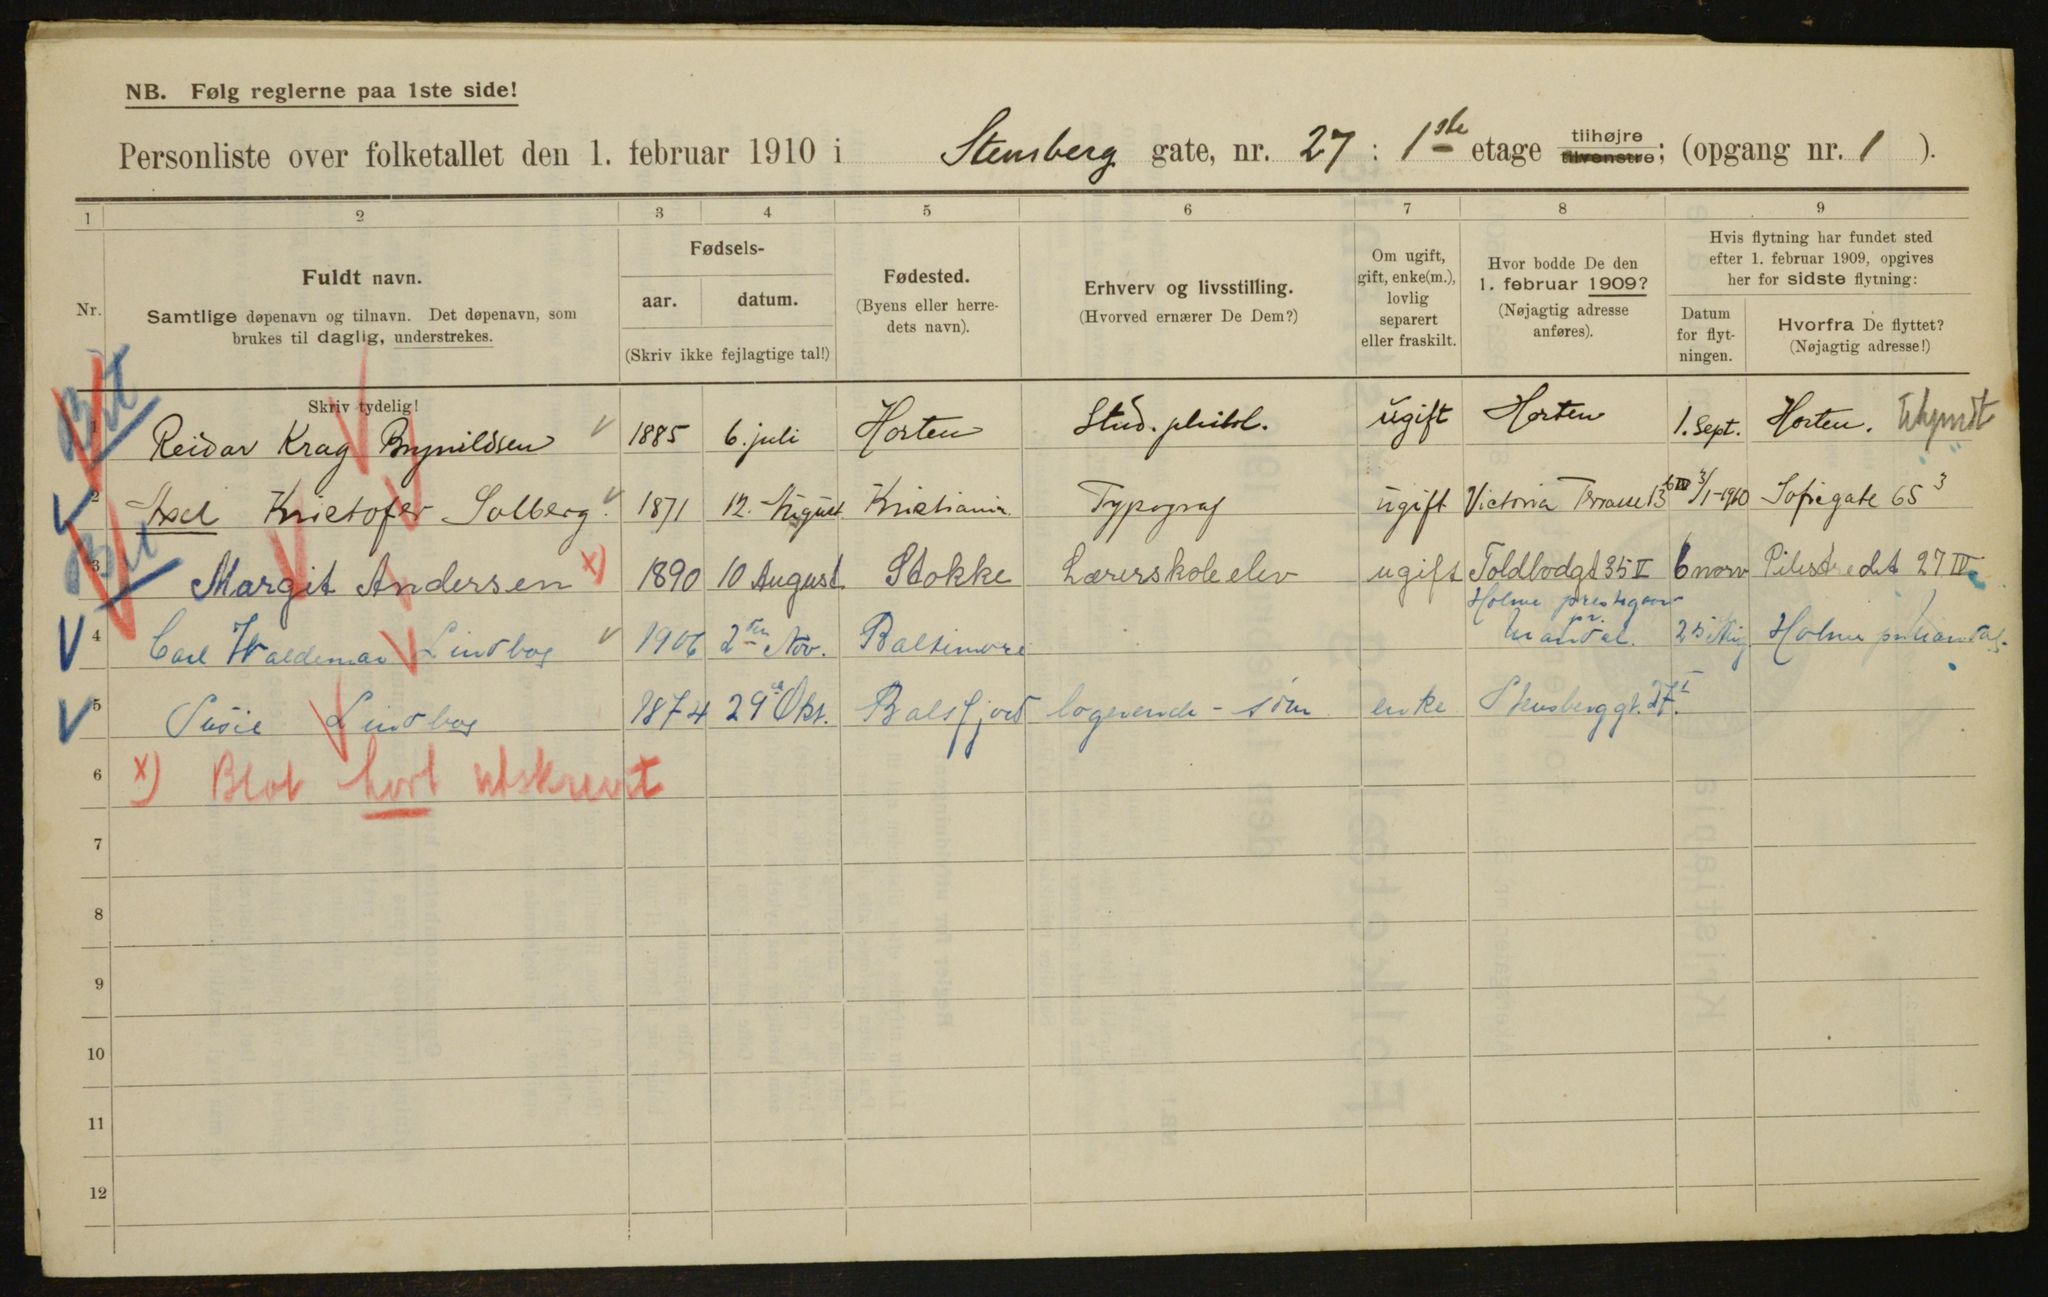 NB. Følg reglerne paa 1ste side!
Personliste over folketallet den 1. februar 1910 i Stensberg gate, nr. 27 : 1ste etage tilhøjre tilvenstre; (opgang nr. 1 ).
1 2 3 4 5 6 7 8 9
Nr.
Fuldt navn.
Samtlige døpenavn og tilnavn. Det døpenavn, som
brukes til daglig, understrekes.
Fødsels-
aar. datum.
(Skriv ikke fejlagtige tal!)
Fødested.
(Byens eller herre-
dets navn).
Erhverv og livsstilling.
(Hvorved ernærer De Dem?)
Om ugift,
gift, enke(m.),
lovlig
separert
eller fraskilt.
Hvor bodde De den
1. februar 1909?
(Nøjagtig adresse
anføres).
Hvis flytning har fundet sted
efter 1. februar 1909, opgives
her for sidste flytning:
Datum
for flyt-
ningen.
Hvorfra De flyttet?
(Nøjagtig adresse!)
Skriv tydelig!
1 Reidar Krag Brynildsen 1885 6. juli Horten Stud. philol. ugift Horten 1. Sept. Horten.
2 Axel Kristofer Solberg 1871 12. August Kristiania Typograf ugift Victoria Terrasse 13 3/1-1910 Sofiegate 65 3
3 Margit Andersen x) 1890 10 August Stokke Lærerskoleelev ugift Toldbodgt 35 II 6 novv Pilestredet 27 IV
4 Carl Waldemar Lindboe 1906 2den Nov. Baltimore Holme prestegaard pr. Mandal. 25 Aug Holme pr. Mandal.
5 Susie Lindboe 1874 29de Okt. Balsfjord logerende - söm enke Stensberggt. 27 I
6 x) Blot kort utskrevet
7
8
9
10
11
12